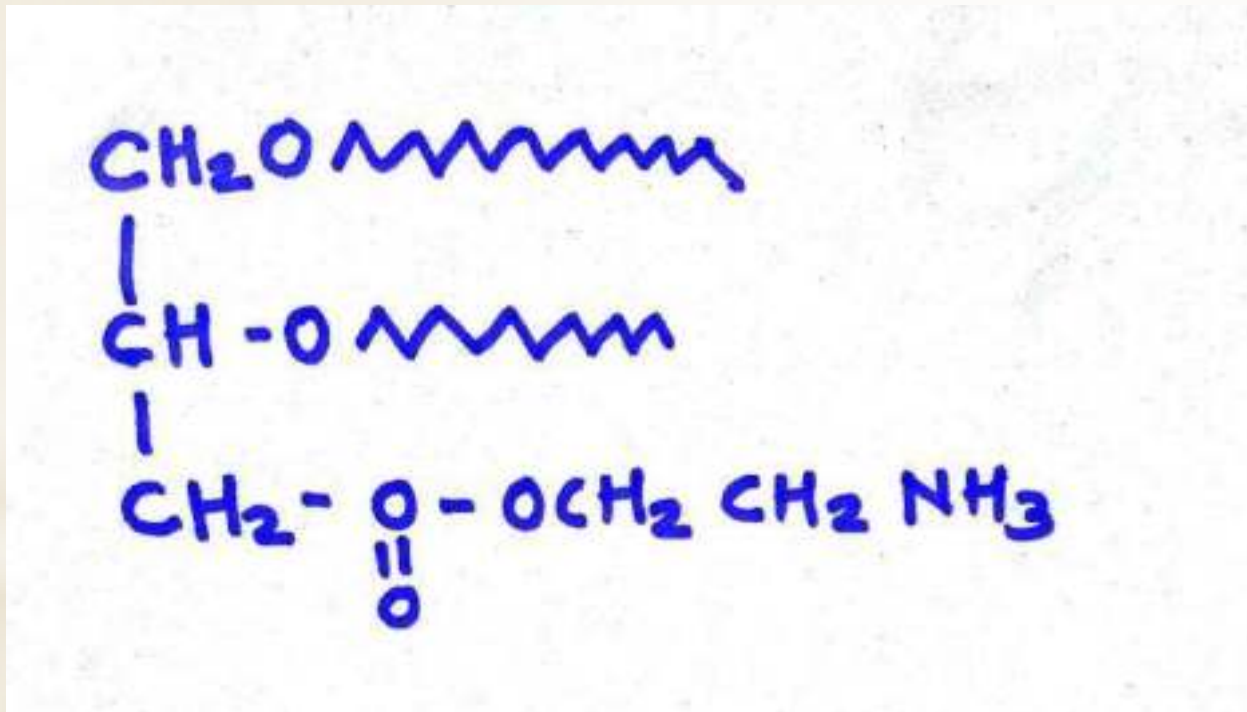 CH₂O
CH-O
CH₂-O-OCH₂ CH₂ NH₃
O